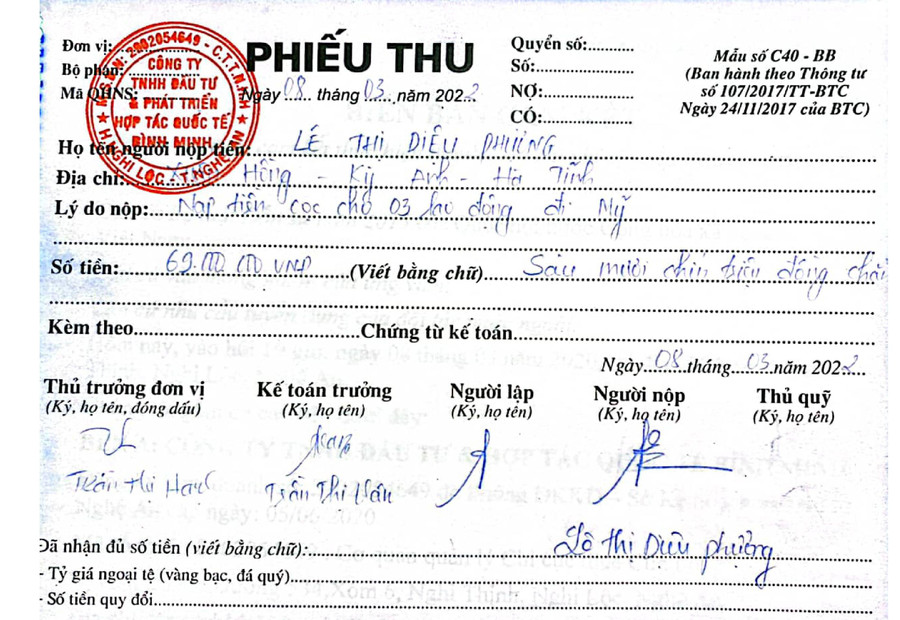 Đơn vị:
Bộ phận:
Mã QHNS:
M.S.D.N: 2902054649 - C.T.T.N.H.H
CÔNG TY
TNHH ĐẦU TƯ
& PHÁT TRIỂN
HỢP TÁC QUỐC TẾ
BÌNH MINH
H. NGHI LỘC - T. NGHỆ AN
PHIẾU THU
Ngày 08 tháng 03 năm 2022
Quyển số:...........
Số:...........
NỢ:...........
CÓ:...........
Mẫu số C40 - BB
(Ban hành theo Thông tư
số 107/2017/TT-BTC
Ngày 24/11/2017 của BTC)
Họ tên người nộp tiền: LÊ THỊ DIỆU PHƯƠNG
Địa chỉ: Hồng - Kỳ Anh - Hà Tĩnh
Lý do nộp: Nộp tiền cọc cho 03 lao động đi Mỹ
Số tiền: 69.000.000 VNĐ (Viết bằng chữ) Sáu mươi chín triệu đồng chẵn
Kèm theo.....................Chứng từ kế toán
Ngày 08 tháng 03 năm 2022
Thủ trưởng đơn vị Kế toán trưởng Người lập Người nộp Thủ quỹ
(Ký, họ tên, đóng dấu) (Ký, họ tên) (Ký, họ tên) (Ký, họ tên) (Ký, họ tên)
Trần Thị Trần Thị Hậu
Lê Thị Diệu Phương
Đã nhận đủ số tiền (viết bằng chữ):
- Tỷ giá ngoại tệ (vàng bạc, đá quý)
- Số tiền quy đổi